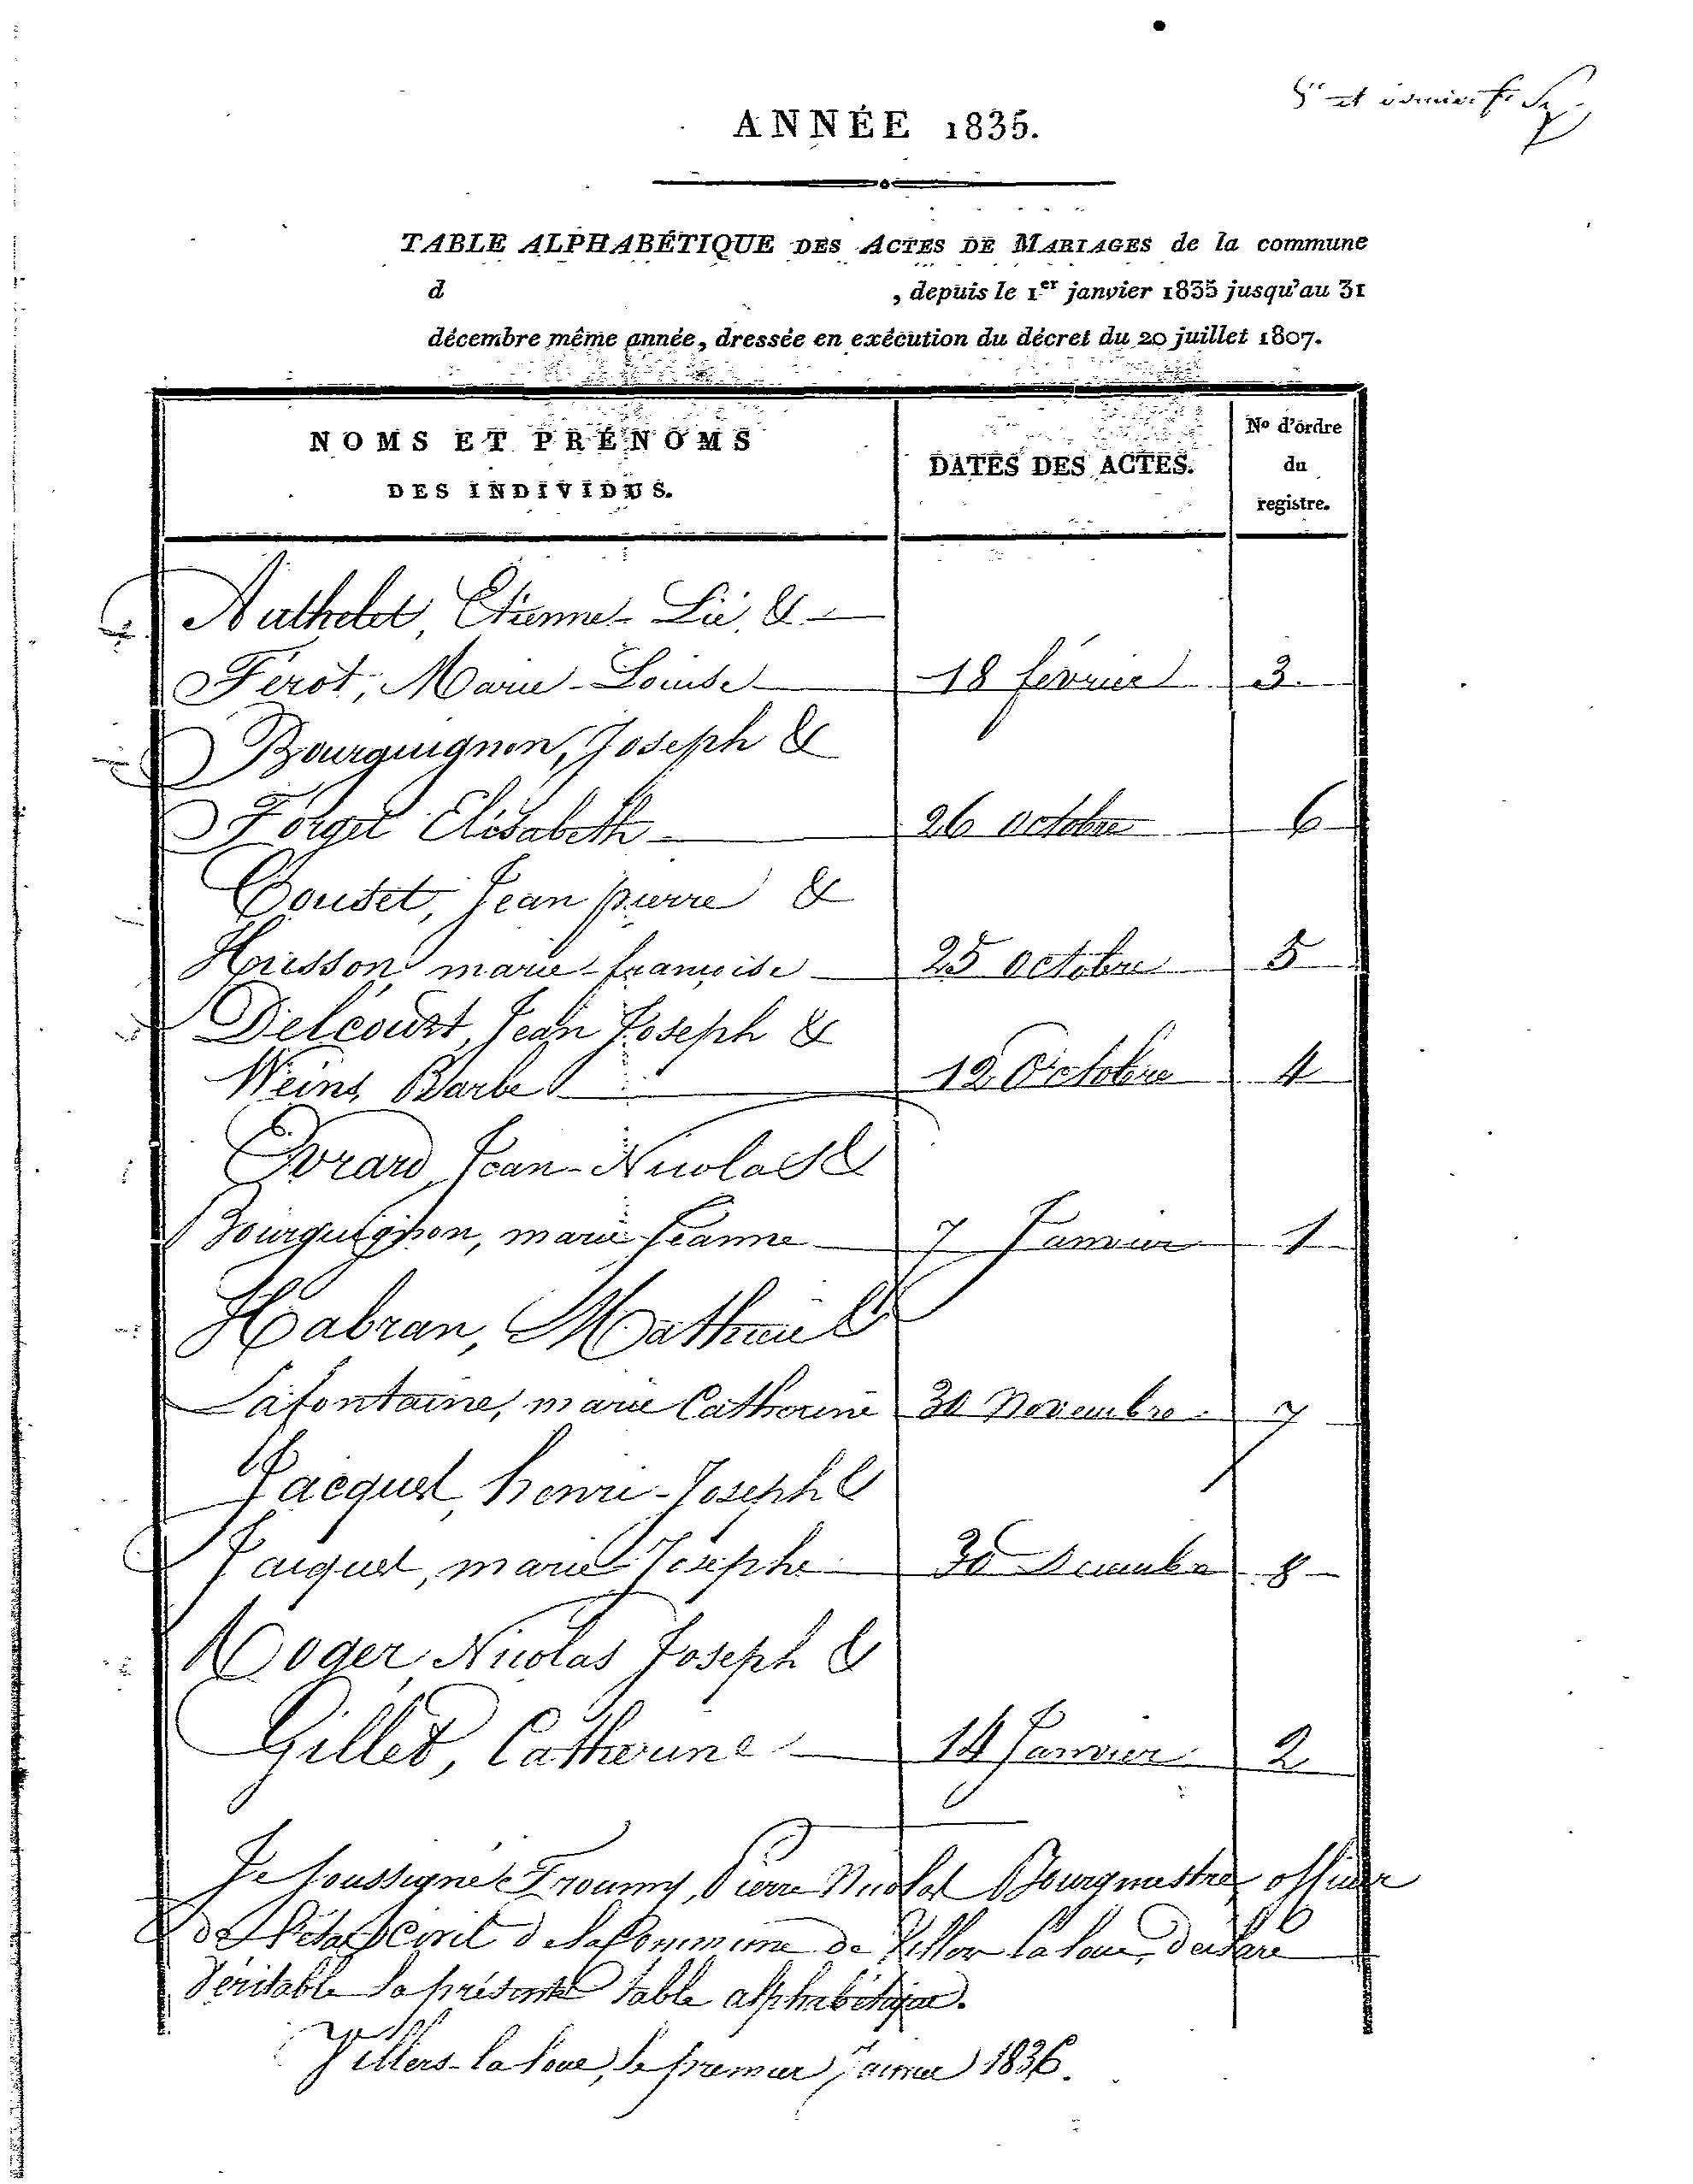 5e et dernier f.
ANNÉE 1835.
TABLE ALPHABÉTIQUE DES ACTES DE MARIAGES de la commune
d , depuis le 1er janvier 1835 jusqu'au 31
décembre même année, dressée en exécution du décret du 20 juillet 1807.
NOMS ET PRÉNOMS
DES INDIVIDUS.
DATES DES ACTES.
No d'ordre
du
registre.
Authelet, Etienne-Lié, &
Férot, Marie-Louise 18 février 3.
Bourguignon, Joseph &
Forget Elisabeth 26 octobre 6
Coudet, Jean pierre &
Husson, marie-françoise 25 octobre 5
Delcourt, Jean Joseph &
Weins, Barbe 12 Octobre 4
Evrard, Jean-Nicolas &
Bourguignon, marie Jeanne 7 Janvier 1
Habran, Mathieu &
Lafontaine, marie Catherine 30 Novembre. 7
Jacquet, henri-Joseph &
Jacquet, marie Josephe 30 Décembre 8
Roger, Nicolas Joseph &
Gillet, Catherine 14 Janvier 2
Je soussigné Pierre Nicolas Bourgmestre, officier
de l'état Civil de la Commune de Villers la loue, déclare
véritable la présente table alphabétique.
Villers-la loue, le premier Janvier 1836.